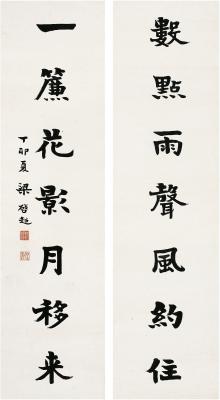 數點雨聲風約住
一簾花影月移来
丁卯夏 梁啟超